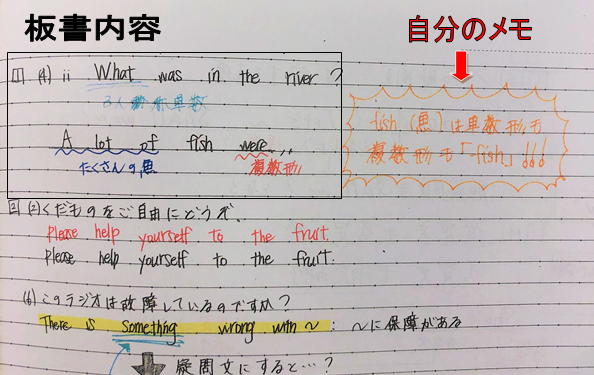 板書内容
自分のメモ
1 (4) ii What was in the river ?
3人称単数
A lot of fish were...
たくさんの魚
複数形
fish (魚) は単数形も
複数形も「-fish」!!!
2 (2) くだものをご自由にどうぞ.
Please help yourself to the fruit.
Please help yourself to the fruit.
(6) このラジオは故障しているのですか?
There is something wrong with ～ : ～に保障がある
疑問文にすると…?